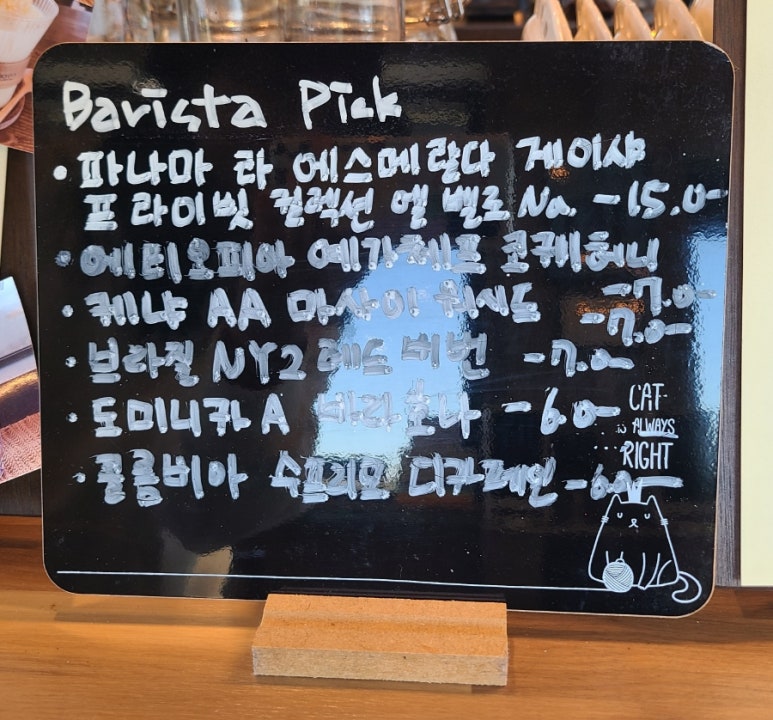 Barista Pick
• 파나마 라 에스메랄다 게이샤
프라이빗 컬렉션 엘 벨로 No. -15.0-
• 에티오피아 예가체프 코케허니
-7.0-
• 케냐 AA 마사이 워시드 -7.0-
• 브라질 NY2 레드 버번 -7.0-
• 도미니카 A 바라호나 -6.0-
• 콜롬비아 수프리모 디카페인 -6.0-
CAT
IS ALWAYS
RIGHT